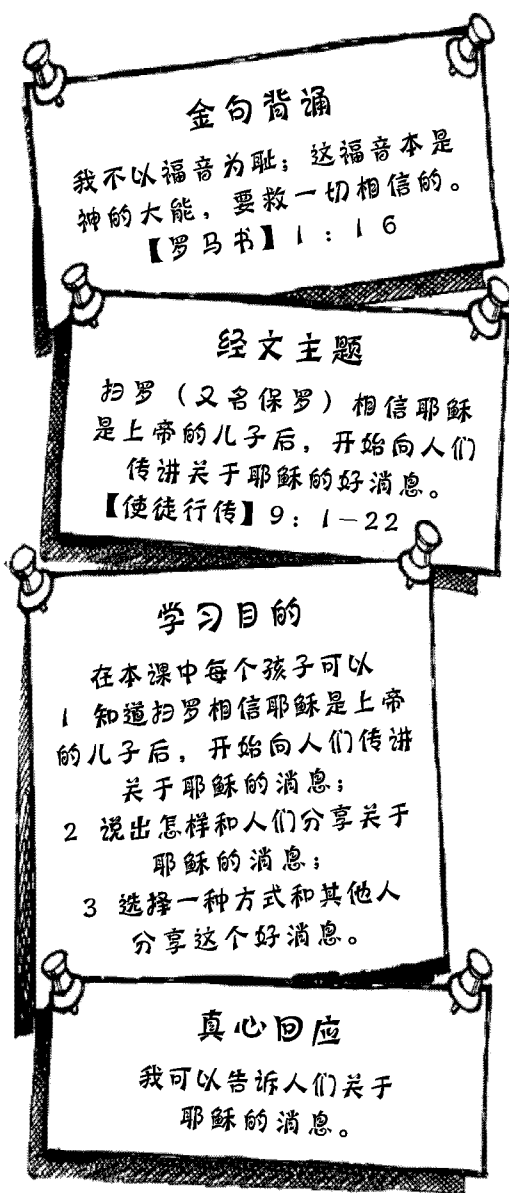 金句背诵
我不以福音为耻；这福音本是
神的大能，要救一切相信的。
【罗马书】1：16
经文主题
扫罗（又名保罗）相信耶稣
是上帝的儿子后，开始向人们
传讲关于耶稣的好消息。
【使徒行传】9：1-22
学习目的
在本课中每个孩子可以
1 知道扫罗相信耶稣是上帝
的儿子后，开始向人们传讲
关于耶稣的消息；
2 说出怎样和人们分享关于
耶稣的消息；
3 选择一种方式和其他人
分享这个好消息。
真心回应
我可以告诉人们关于
耶稣的消息。